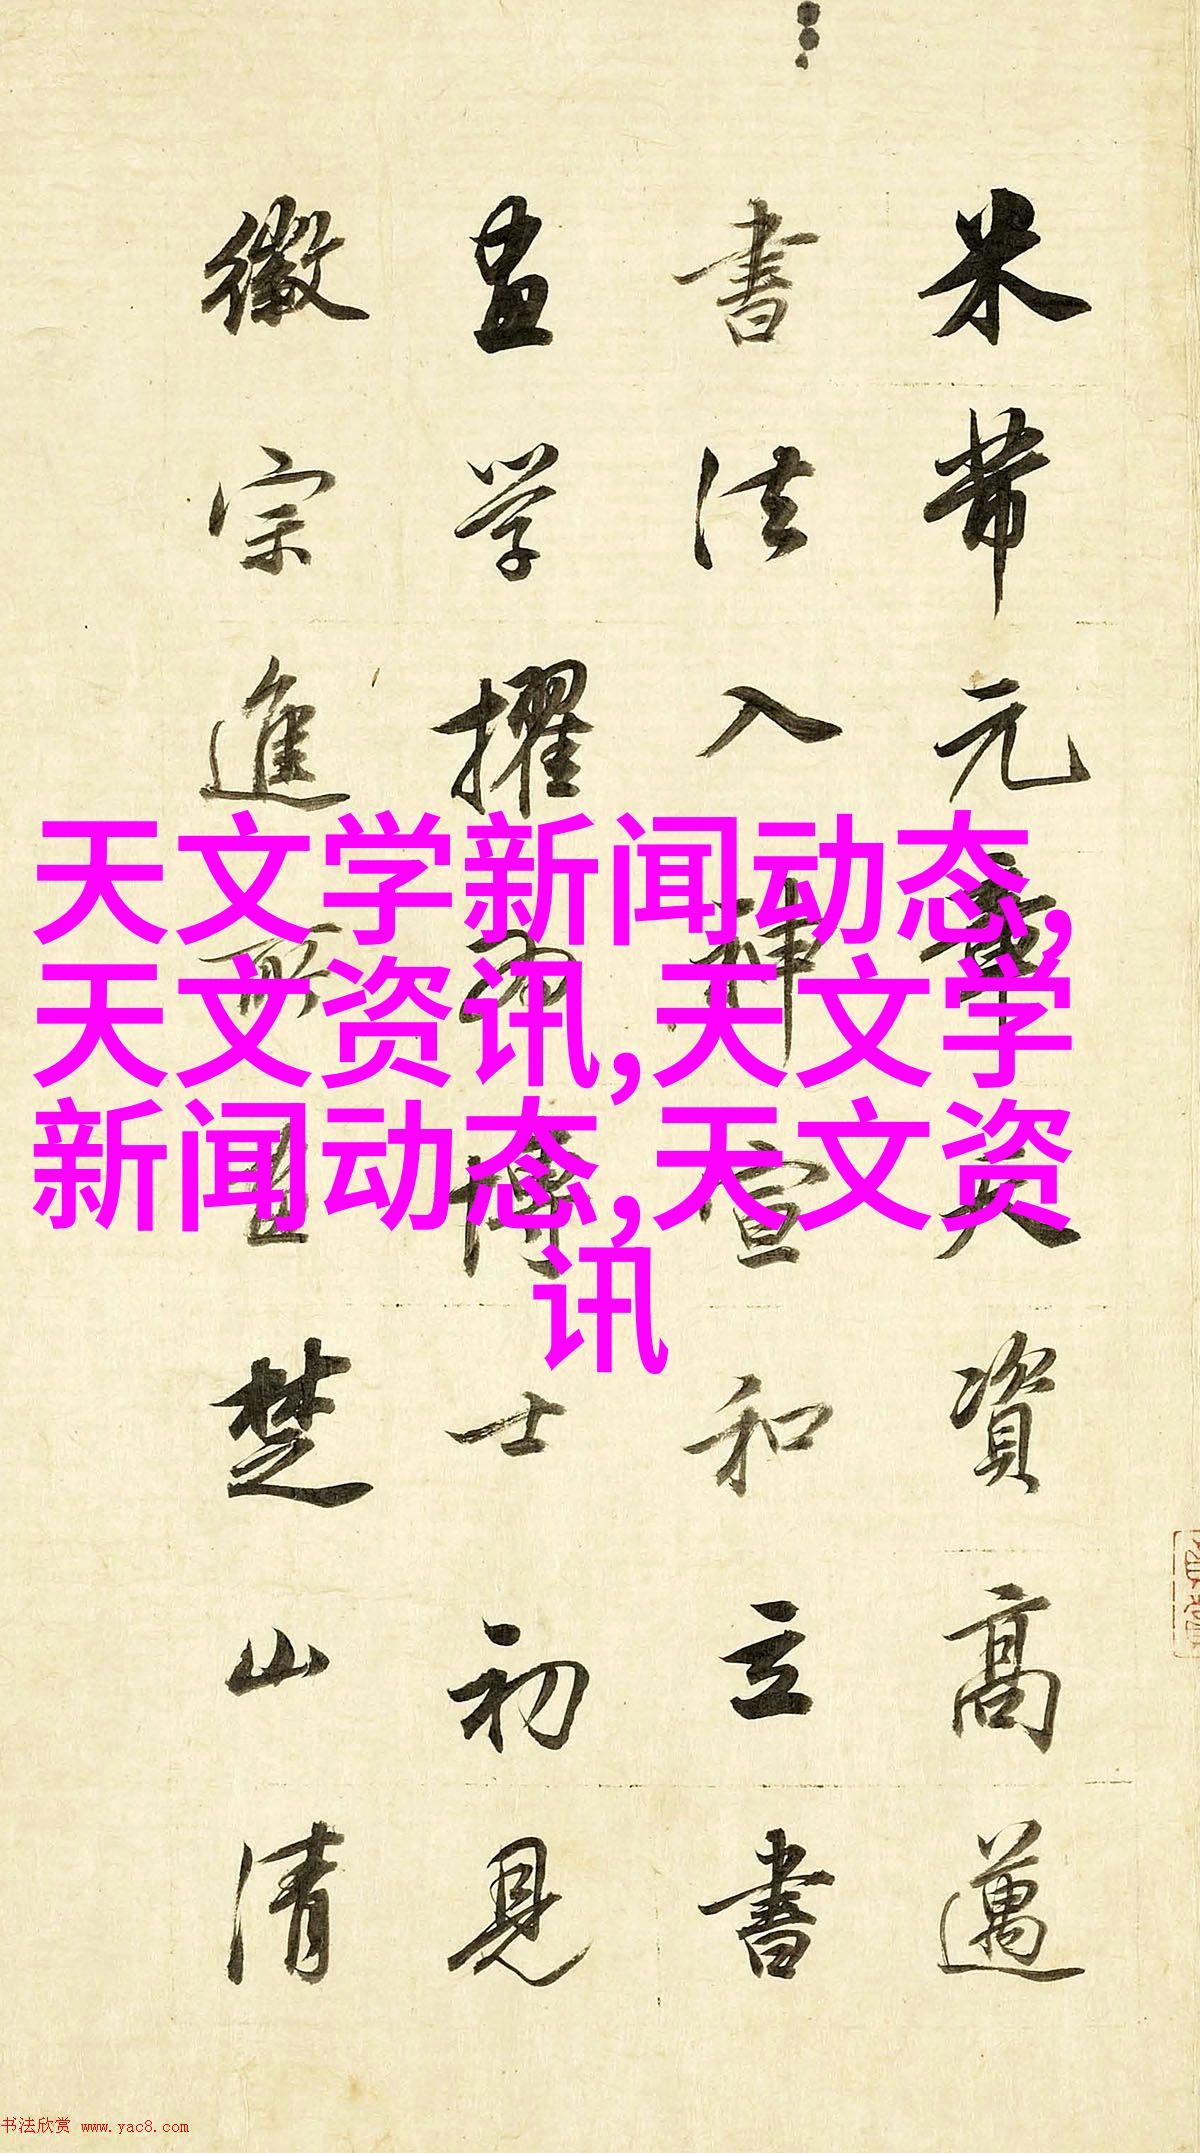 米芾元章天資高邁
書法入神宣和立書
畫学擢為博士初見
徽宗進所畫楚山清
天文学新闻动态,
天文资讯,天文学
新闻动态,天文资
讯
书法欣赏 www.yac8.com